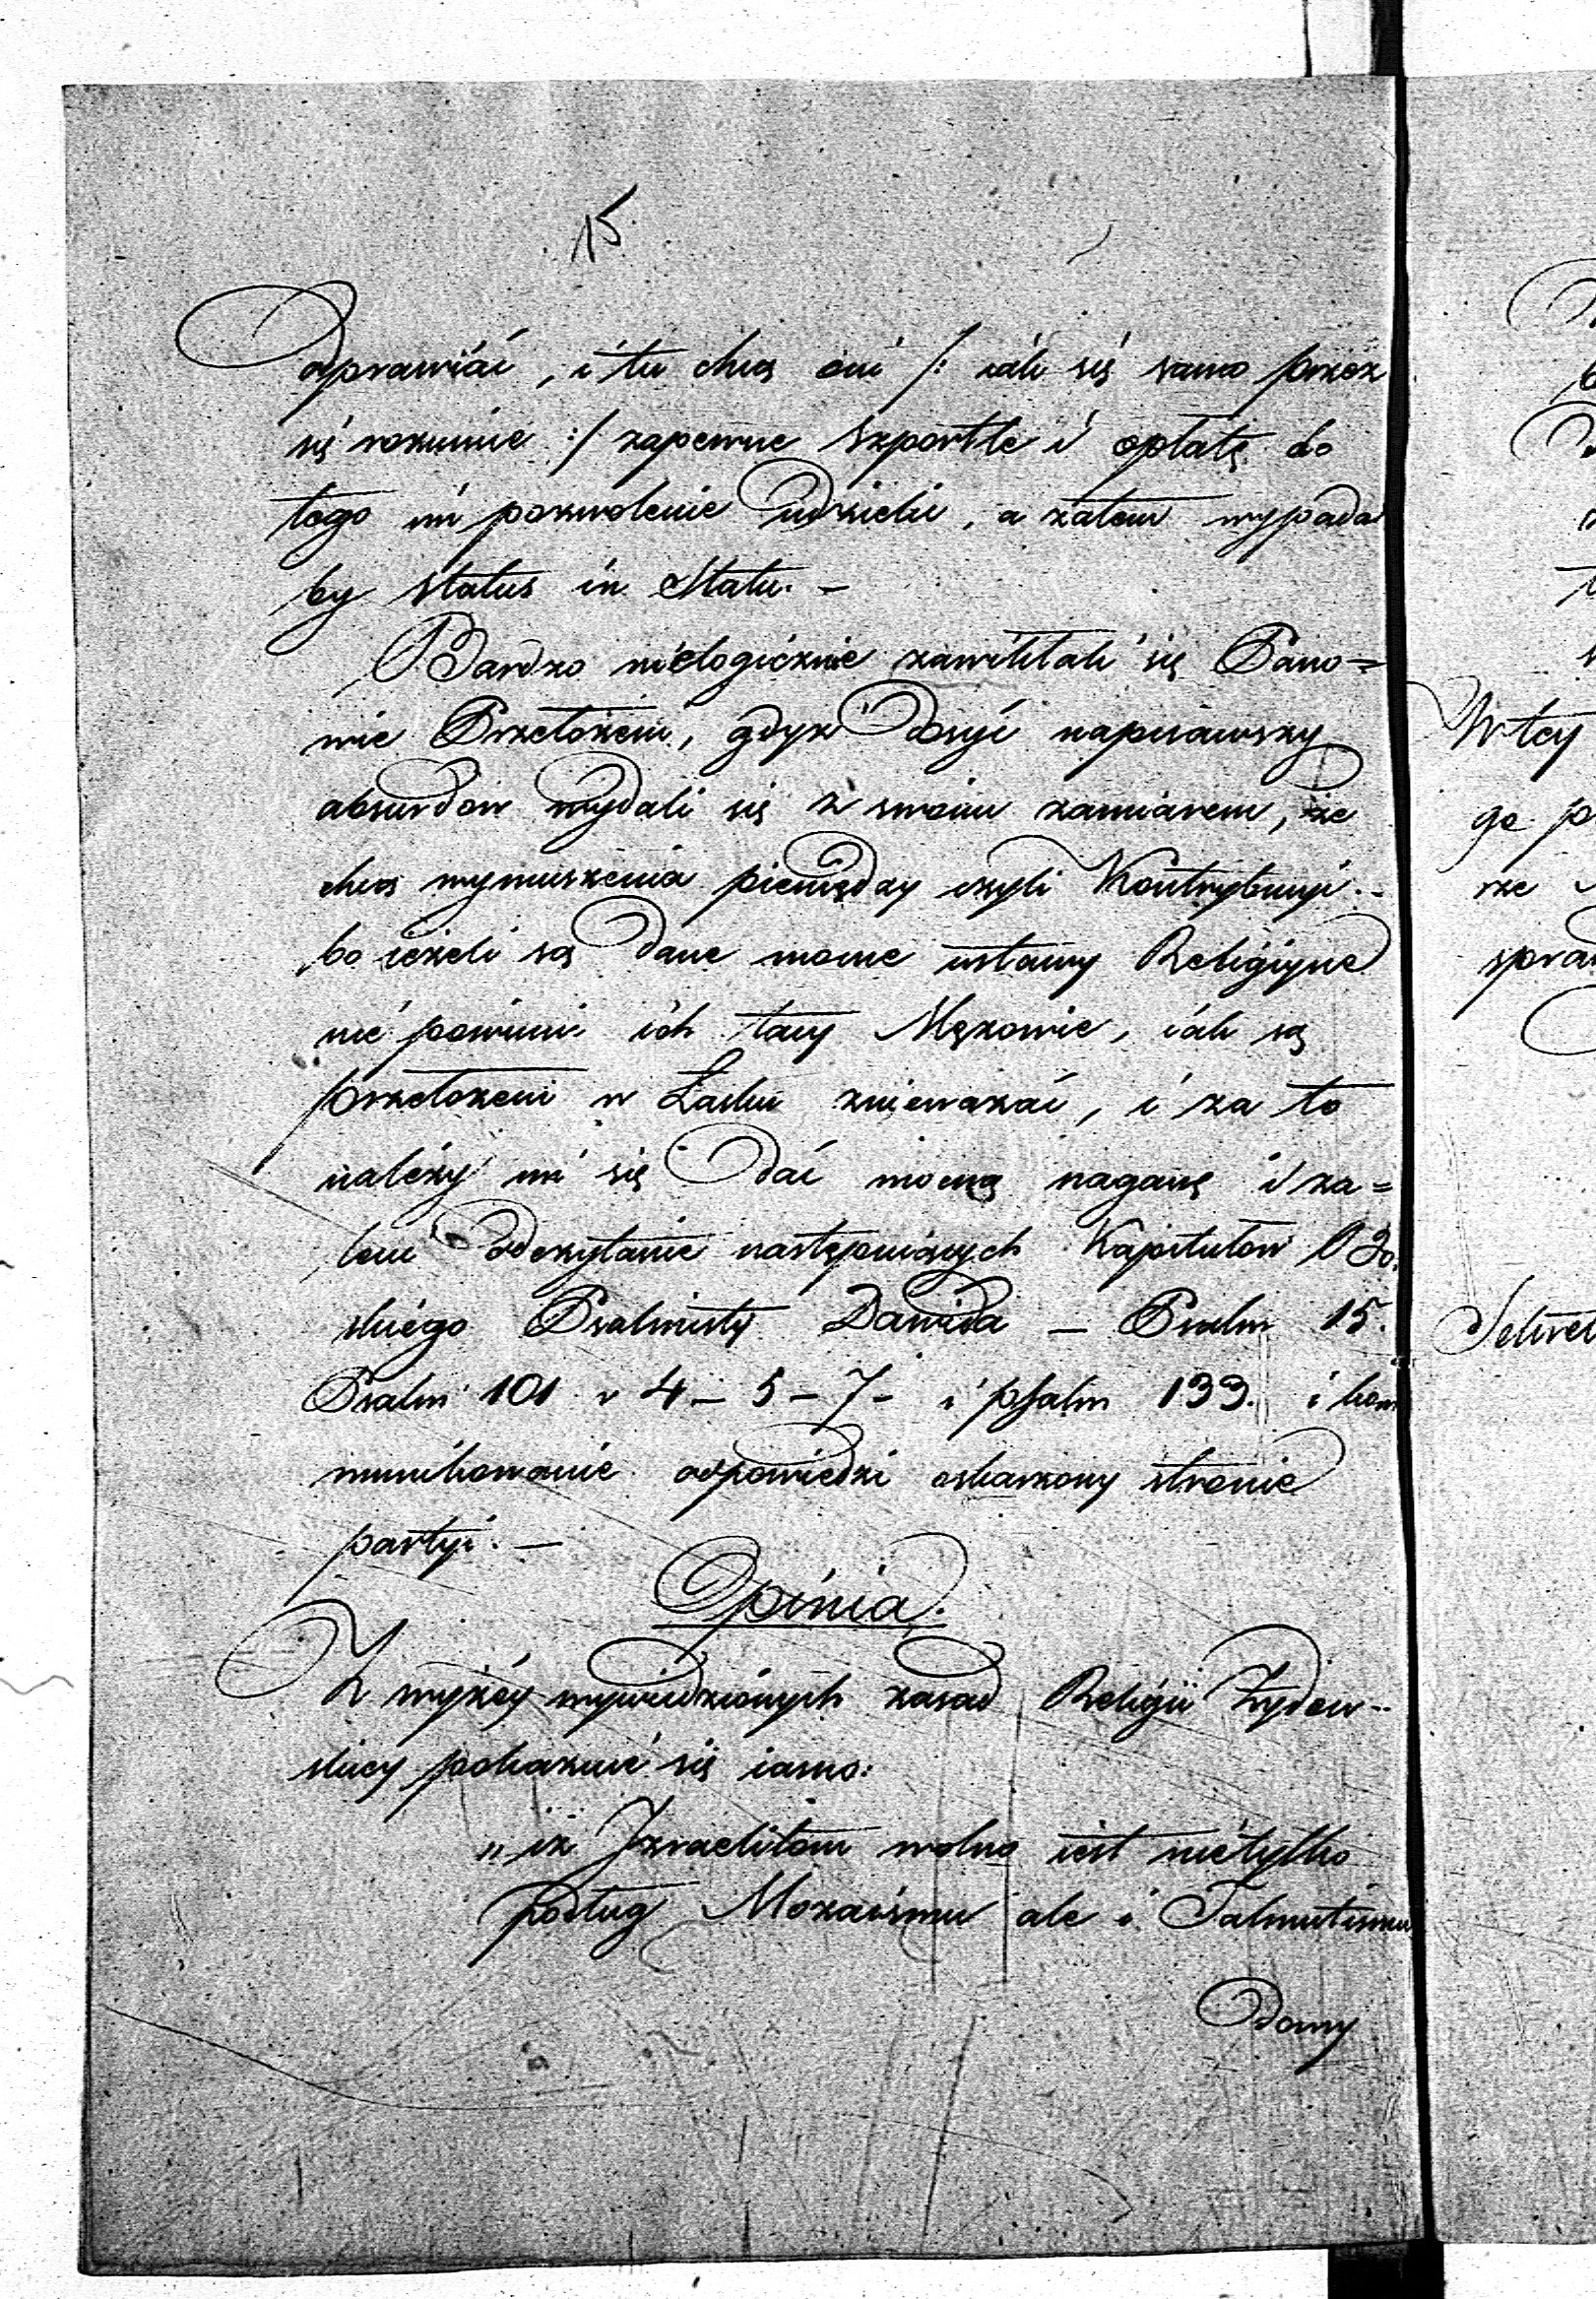 15.
odprawiać, i tu chcą oni /: iak się samo przez
się rozumie :/ zapewne szportle i opłatę do
tego im pozwolenie udzielić, a zatem wypada
by status in Statu. –
Bardzo nielogicznie zawikłali się Pano=
wie Przełożeni, gdyż dosyć napisawszy
absurdów wydali się z swoim zamiarem, że
chcą wymuszenia pieniędzy czyli Kontrybucyi. –
bo ieżeli są dane mocne ustawy Religiyne
nie powinni ich tacy Mężowie, iak są
przełożeni w Łasku znieważać, i za to
należy im się dać mocną naganę i za=
lem odczytanie następuiących Kapitułów Bo
skiego Psalmisty Dawida – Psalm 15.
Psalm 101 v 4 – 5 – 7 – i psalm 133. i kom
munikowanie odpowiedzi oskarzony stronie
partyi. –
Opinia.
Z wyżéy wywiedzionych zasad Religii Żydow–
skiey pokazuie się iasno:
„iż Izraelitom wolno iest nietylko
podług Mozaismu ale i Talmutismu
Domy
W tey
ge p
rze
spra
Sekret